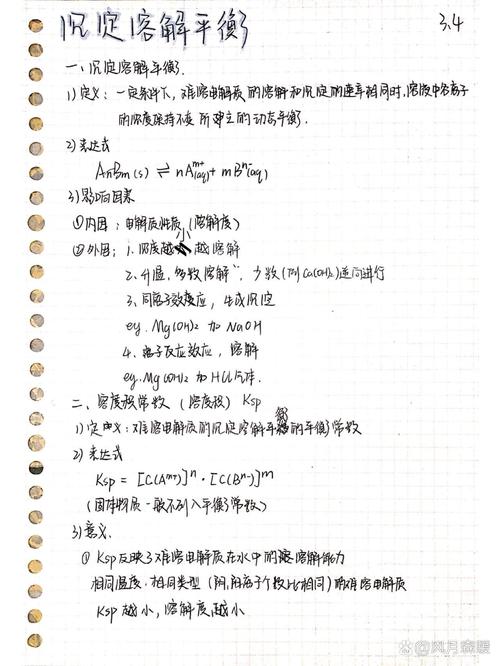 沉淀溶解平衡
3.4
一、沉淀溶解平衡.
1) 定义：一定条件下，难溶电解质的溶解和沉淀的速率相同时,溶液中各离子
的浓度保持不变 所建立的动态平衡.
2) 表达式
AnBm(s) ⇌ nA^{m+}(aq) + mB^{n-}(aq)
3) 影响因素
①内因：电解质性质 (溶解度)
②外因：1. 浓度越小 越溶解
2. 升温，多数溶解, 少数(例Ca(OH)₂)逆向进行
3. 同离子效应，生成沉淀
eg. Mg(OH)₂ 加 NaOH
4. 离子反应效应，溶解
eg. Mg(OH)₂ 加 HCl气体.
二、溶度积常数 (溶度积) Ksp
1) 定义：难溶电解质的沉淀溶解平衡的平衡常数
2) 表达式
Ksp = [C(A^{m+})]^n · [C(B^{n-})]^m
(固体物质一般不列入平衡常数)
3) 意义.
① Ksp反映了难溶电解质在水中的溶解能力
相同温度.相同类型 (阴,阳离子个数比相同) 的难溶电解质
Ksp越小，溶解度越小
@风月宿暖